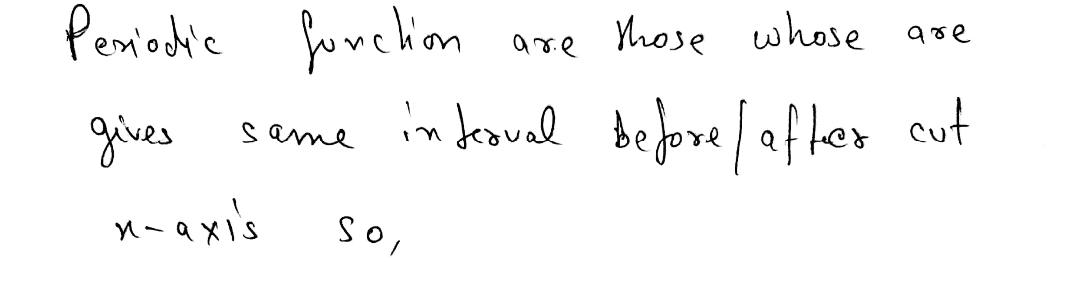 Periodic function are those whose are
gives same interval before/after cut
x-axis so,